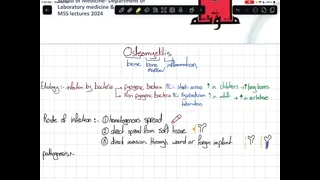 School of Medicine- Department of
Laboratory medicine &
MSS lectures 2024
Osteomyelitis
bone bone marrow inflammation
Etiology :- infection by bacteria
pyogenic bacteria
in children
long bones
Non pyogenic bacteria
in adult
vertebrae
tuberculosis
Route of infection :- ① hematogenous spread
② direct spread from soft tissue
③ direct invasion through wound or foreign implant
pathogenesis :-